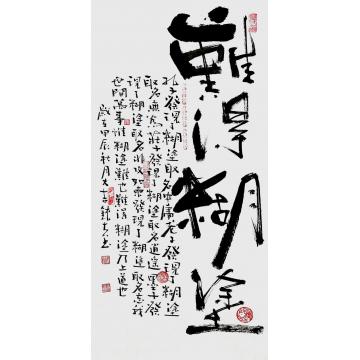 難得糊塗
孔子發現了糊塗取名中庸老子發現了糊塗
取名無為莊子發現了糊塗取名逍遙墨子發
現了糊塗取名非攻如來發現了糊塗取名忘我
世間萬事惟糊塗難也難得糊塗乃上道也
歲在甲辰秋月